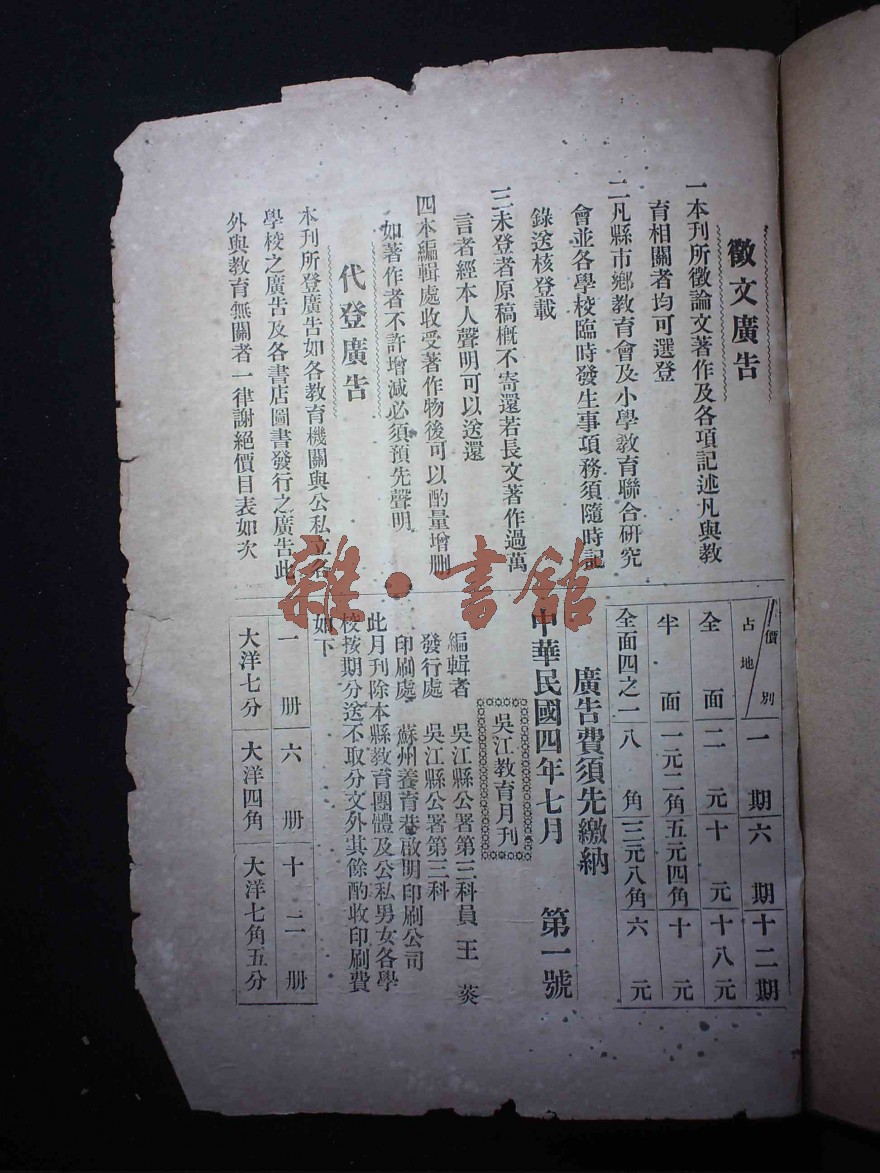 徵文廣告
一本刊所徵論文著作及各項記述凡與教
育相關者均可選登
二凡縣市鄉教育會及小學教育聯合研究
會並各學校臨時發生事項務須隨時記
錄送核登載
三未登者原稿概不寄還若長文著作過萬
言者經本人聲明可以送還
四本編輯處收受著作物後可以酌量增刪
如著作者不許增減必須預先聲明
代登廣告
本刊所登廣告如各教育機關與公私立各
學校之廣告及各書店圖書發行之廣告此
外與教育無關者一律謝絕價目表如次
價別 占地 一期 六期 十二期
全面 二元 十元 十八元
半面 一元二角 五元四角 十元
全面四之一 八角 三元八角 六元
廣告費須先繳納
中華民國四年七月 第一號
吳江教育月刊
編輯者 吳江縣公署第三科員 王
發行處 吳江縣公署第三科
印刷處 蘇州養育巷啟明印刷公司
此月刊除本縣教育團體及公私男女各學
校按期分送不取分文外其餘酌收印刷費
如下
一册 六册 十二册
大洋七分 大洋四角 大洋七角五分
雜·書館